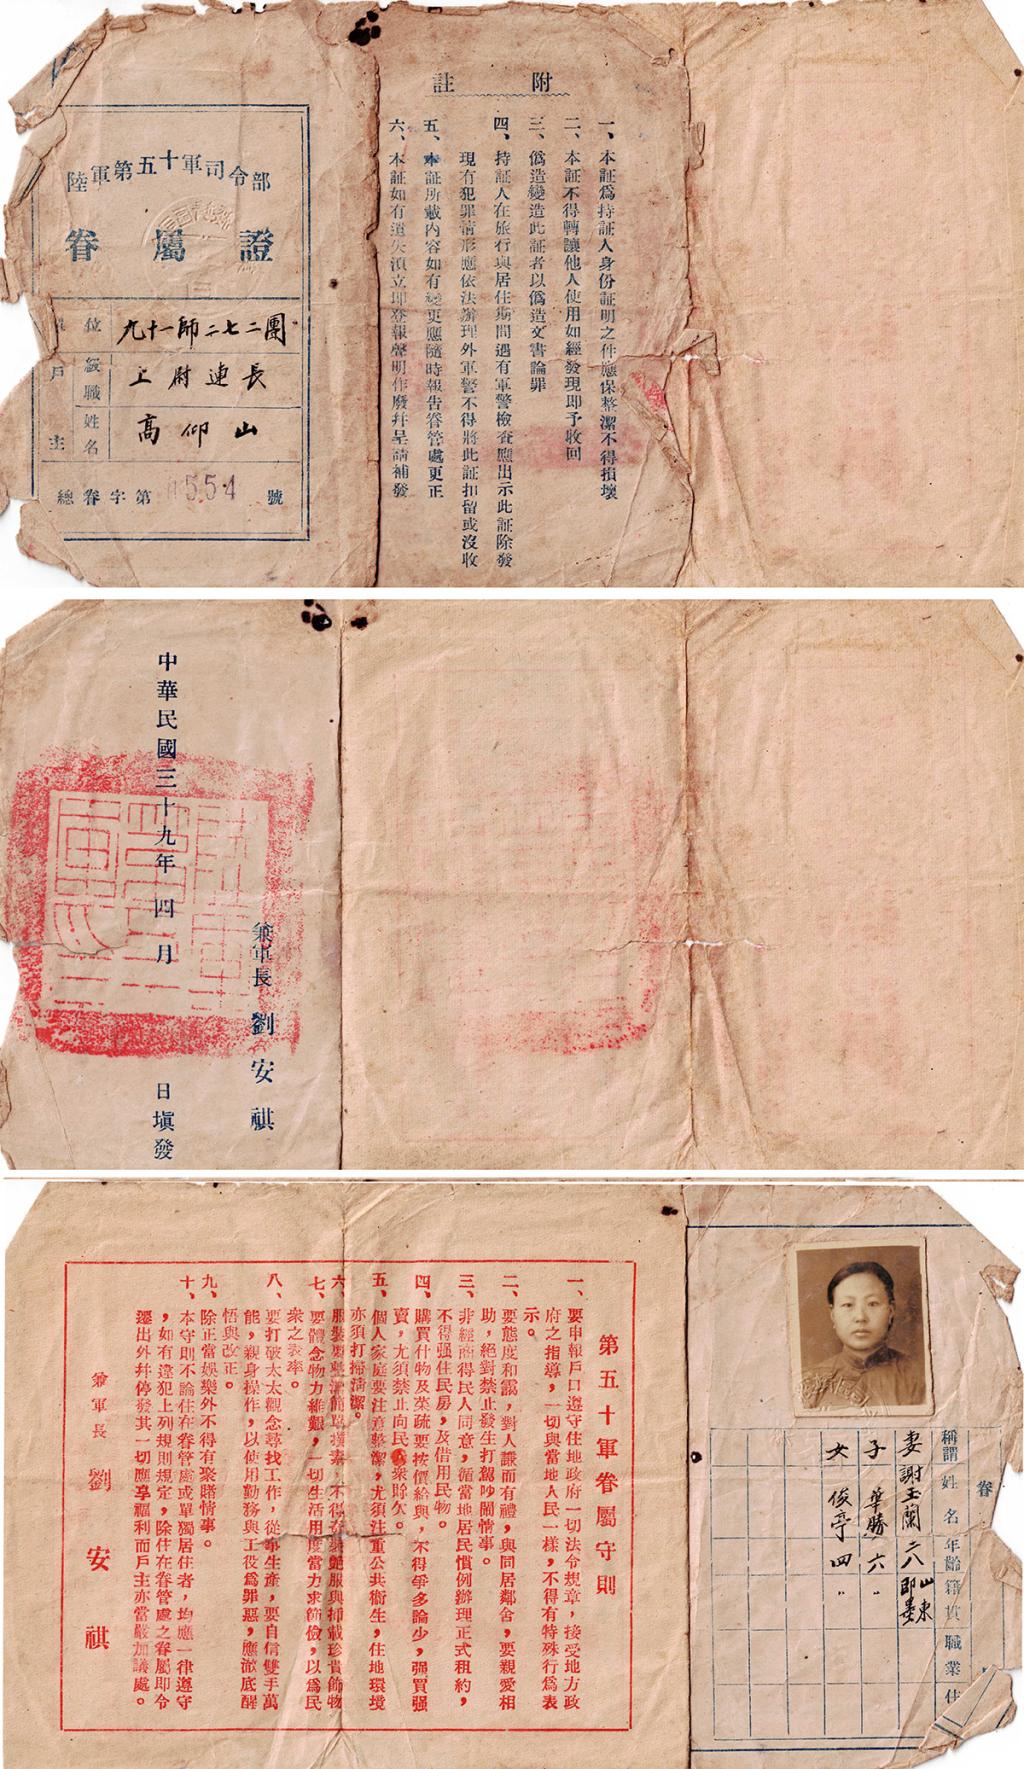 陸軍第五十軍司令部
眷屬證
位 九十一師二七二團
戶主
級職 上尉連長
姓名 高仰山
總眷字第 554 號
附註
一、本証爲持証人身份証明之件應保整潔不得損壞
二、本証不得轉讓他人使用如經發現即予收回
三、僞造變造此証者以僞造文書論罪
四、持証人在旅行與居住期間遇有軍警檢查應出示此証除發
現有犯罪情形應依法辦理外軍警不得將此証扣留或沒收
五、本証所載內容如有變更應隨時報告眷管處更正
六、本証如有遺失湏立即登報聲明作廢幷呈請補發
兼軍長 劉安祺
中華民國三十九年四月 日塡發
第五十軍眷屬守則
一、要申報戶口遵守住地政府一切法令規章,接受地方政
府之指導,一切與當地人民一樣,不得有特殊行爲表
示。
二、要態度和靄,對人謙而有禮,與同居鄰舍,要親愛相
助,絕對禁止發生打駡吵鬧情事。
三、非經商得民人同意,循當地居民慣例辦理正式租約,
不得强住民房,及借用民物。
四、購買什物及菜疏要按價給與,不得爭多論少,强買强
賣,尤須禁止向民衆賒欠。
五、個人家庭要注意整潔,尤須注重公共衞生,住地環境
亦須打掃清潔。
六、服裝要整潔簡單樸素,不得奇裝艷服與揷戴珍貴飾物
七、要體念物力維艱,一切生活用度當力求節儉,以爲民
衆之表率。
八、要打破太太觀念尋找工作,從事生產,要自信雙手萬
能,親身操作,以使用勤務與工役爲罪惡,應澈底醒
悟與改正。
九、除正當娛樂外不得有聚賭情事。
十、本守則不論住在眷管處或單獨居住者,均應一律遵守
,如有違犯上列規則規定,除住在眷管處之眷屬即令
遷出外幷停發其一切應享福利而戶主亦當嚴加議處。
兼軍長 劉安祺
眷
稱謂 姓名 年齡 籍貫 職業 住
妻 謝玉蘭 二八 山東即墨
子 華勝 六 〃
女 俊亭 四 〃